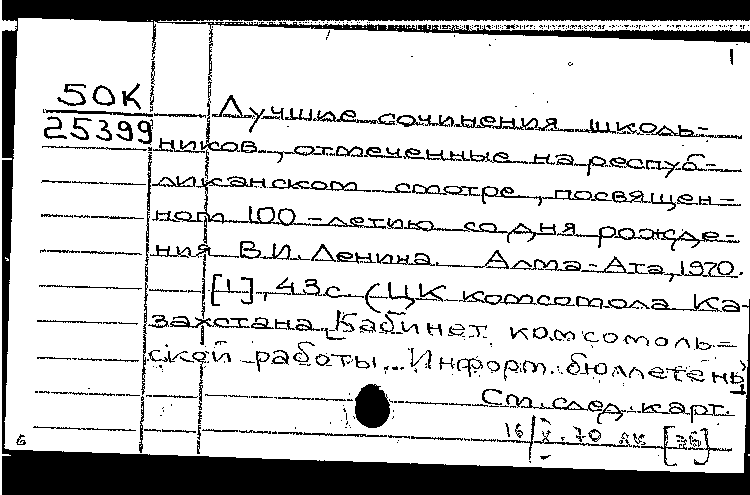 1
50К
25399
Лучшие сочинения школь=
ников, отмеченные на респуб=
ликанском смотре, посвящен=
ном 100-летию со дня рожде-
ния В.И. Ленина. Алма-Ата, 1970.
[1], 43с. (ЦК комсомола Ка-
захстана, Кабинет комсомоль=
ской работы... Информ. бюллетень)
См. след. карт.
16/X.70 [76]
6